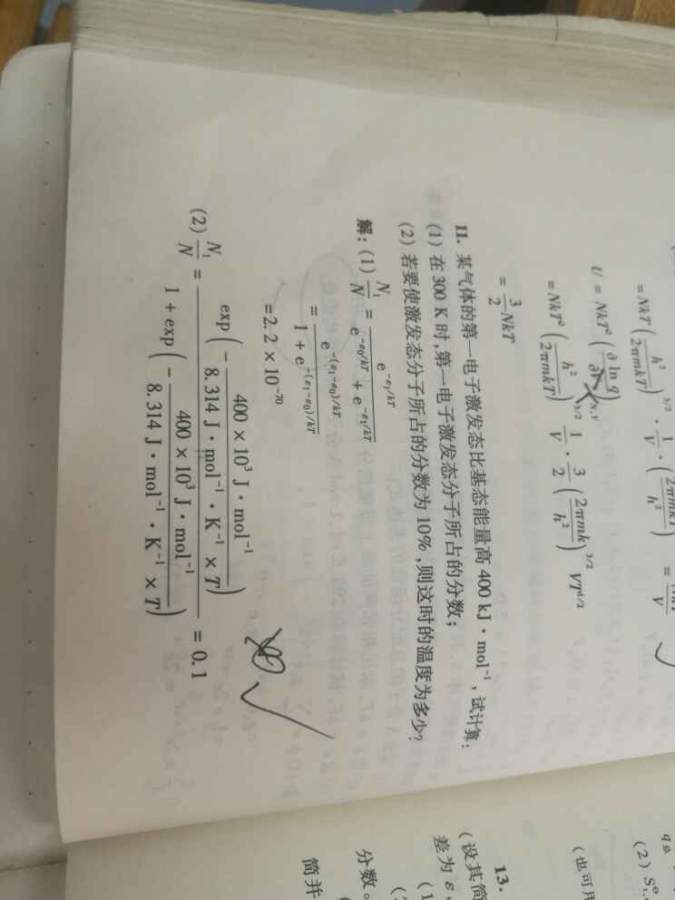 = NkT ( h² / 2πmkT )^{3/2} · 1/V · ( 2πmkT / h² ) =
U = NkT² ( ∂ ln q / ∂T )_{N,V}
= NkT² ( h² / 2πmkT )^{3/2} 1/V · 3/2 ( 2πmk / h² )^{3/2} VT^{1/2}
= 3/2 NkT
11. 某气体的第一电子激发态比基态能量高 400 kJ · mol⁻¹,试计算:
(1) 在 300 K 时,第一电子激发态分子所占的分数;
(2) 若要使激发态分子所占的分数为 10%,则这时的温度为多少?
解: (1) N₁/N = e^{-ε₁/kT} / ( e^{-ε₀/kT} + e^{-ε₁/kT} )
= e^{-(ε₁-ε₀)/kT} / ( 1 + e^{-(ε₁-ε₀)/kT} )
= 2. 2 × 10⁻⁷⁰
(2) N₁/N = exp( - 400 × 10³ J · mol⁻¹ / 8. 314 J · mol⁻¹ · K⁻¹ × T ) / ( 1 + exp( - 400 × 10³ J · mol⁻¹ / 8. 314 J · mol⁻¹ · K⁻¹ × T ) ) = 0. 1
(2) S
(也可用
13.
(设其简
差为 ε,
(1
(2
分数。
简并